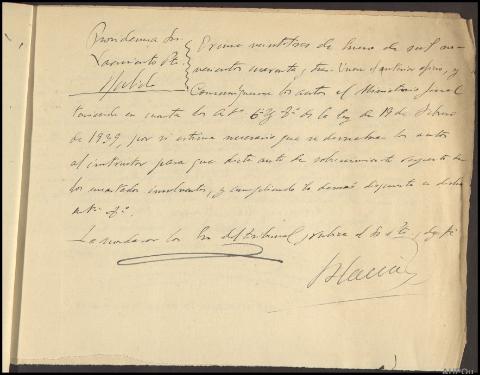 Providencia Sres.
Orense veintitres de Enero de mil no-
vecientos cuarenta y tres. Unase el anterior oficio, y
comuniquense los autos al Ministerio Fiscal
teniendo en cuenta los Arts 6º y 8º de la ley de 19 de Febrero
de 1939, por si estima necesario que se devuelvan los autos
al instructor para que dicte auto de sobreseimiento respecto de
los encartados insolventes, y cumpliendo lo demás dispuesto en dicho
artº 8º.
La mandaron los Sres del tribunal y rubrica el Sr Pte, doy fe